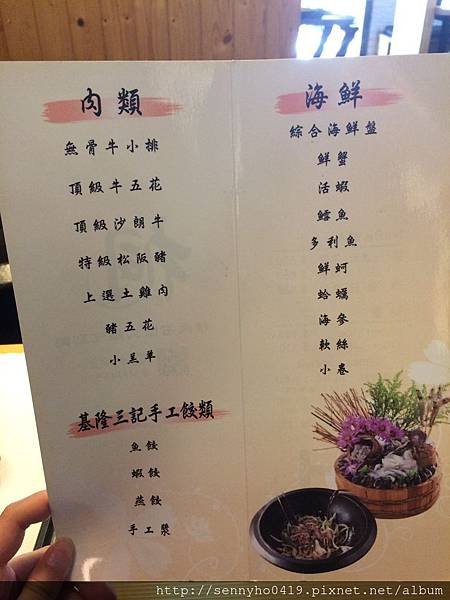 肉類
無骨牛小排
頂級牛五花
頂級沙朗牛
特級松阪豬
上選土雞肉
豬五花
小羔羊
基隆三記手工餃類
魚餃
蝦餃
燕餃
手工漿
海鮮
綜合海鮮盤
鮮蟹
活蝦
鱈魚
多利魚
鮮蚵
蛤蠣
海參
軟絲
小卷
http://sennyho0419.pixnet.net/album